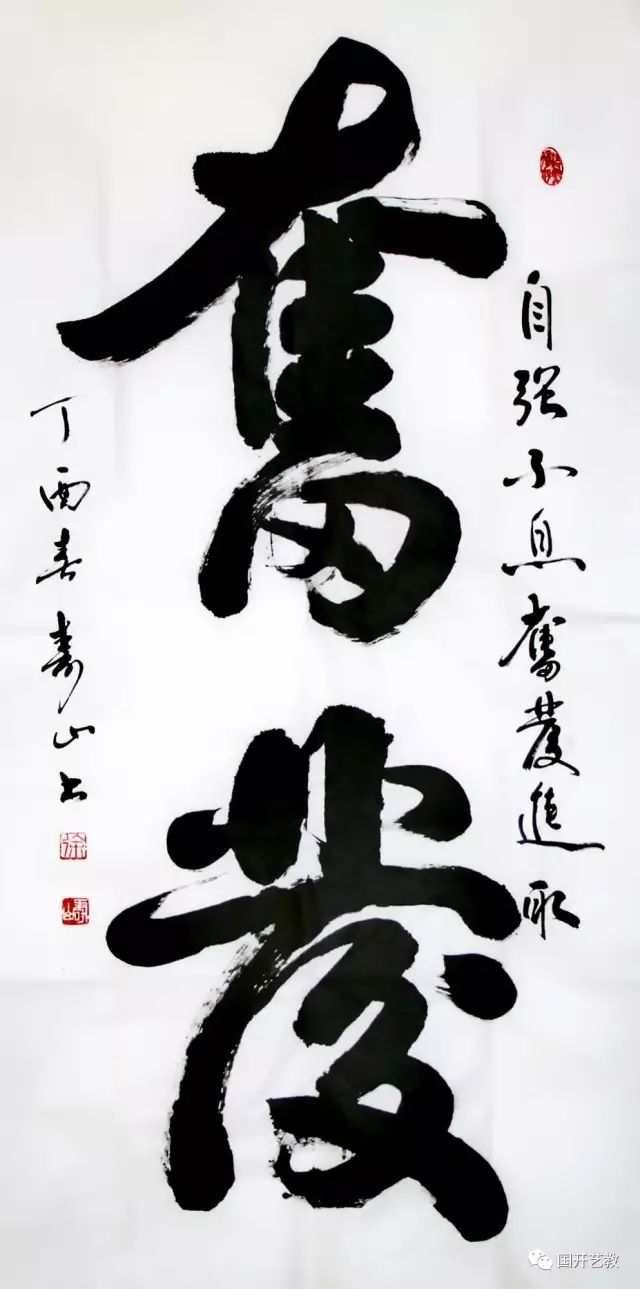 奮發
自强不息奮發進取
丁酉春壽山书
徐
壽山
国开艺教